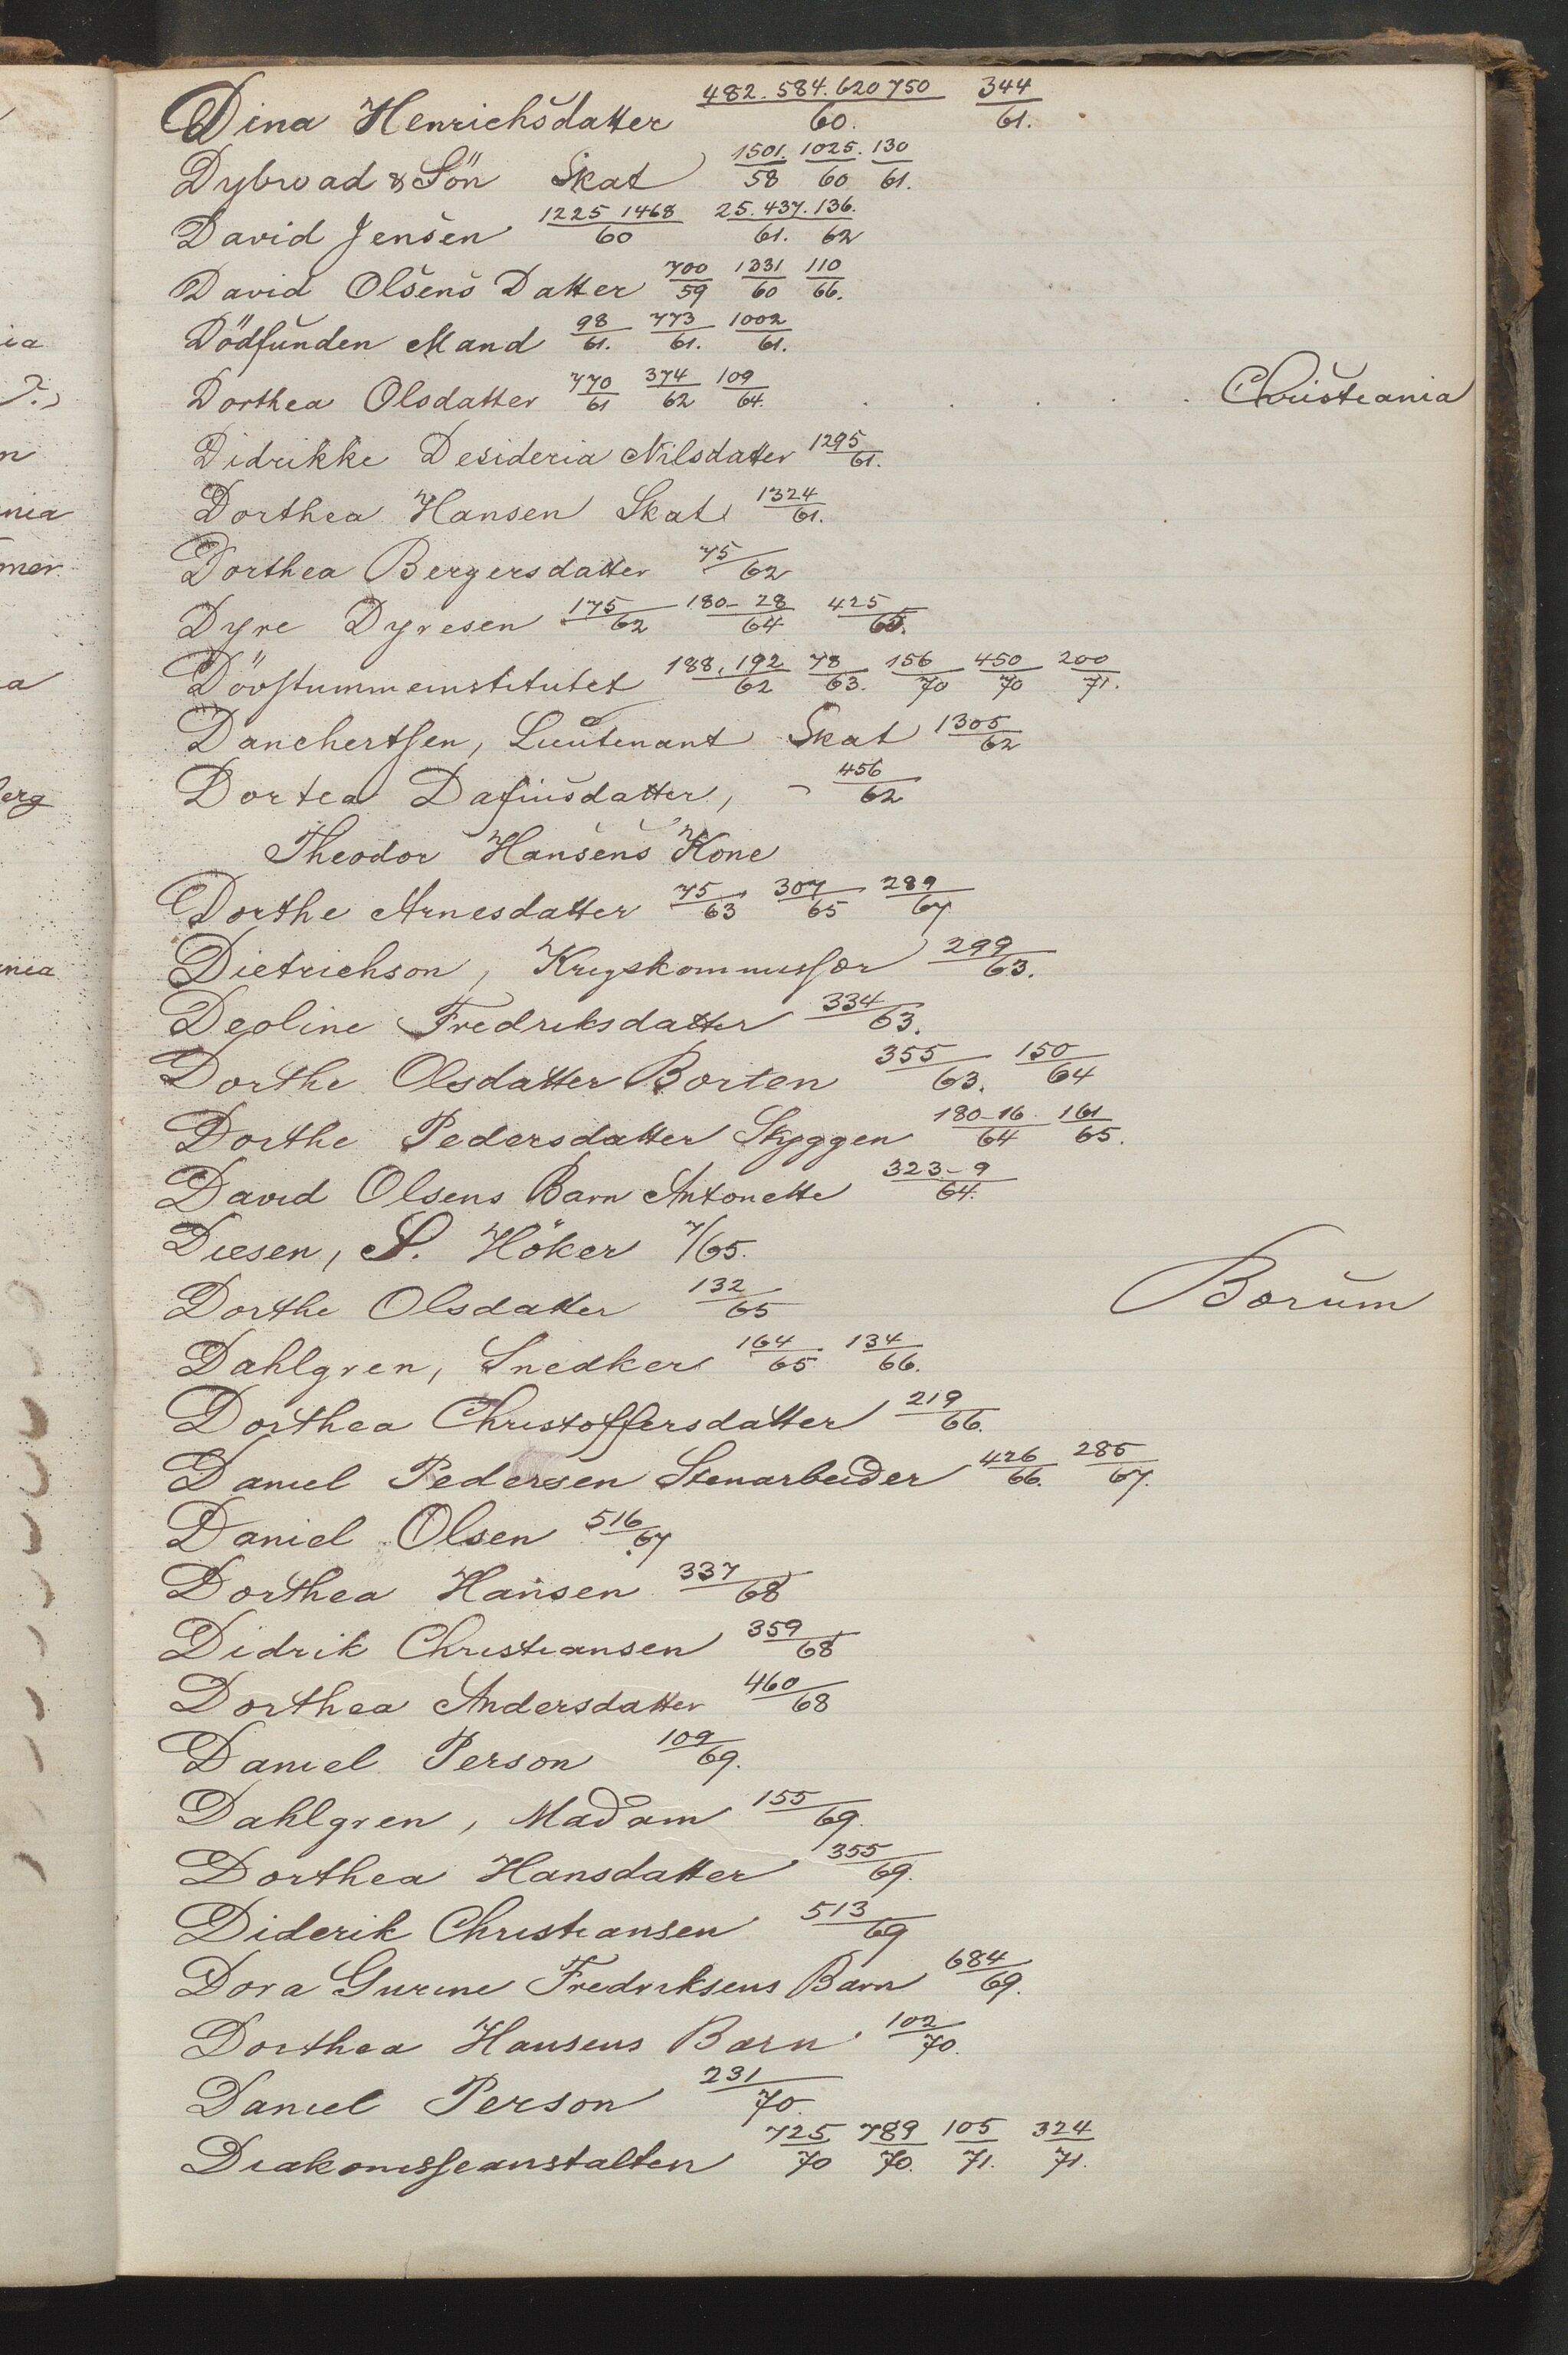 Dina Henrichsdatter 482. 584. 620 750/60. 344/61.
Dybwad & Sön Skat 1501./58 1025./60 130/61.
David Jensen 1225 1468/60 25. 437./61. 136./62
David Olsens Datter 700/59 1331/60 110/66.
Dödfunden Mand 98/61. 773/61. 1002/61.
Dorthea Olsdatter 770/61 374/62 109/64. . . . . . Christiania
Didrikke Desideria Nilsdatter 1295/61.
Dorthea Hansen Skat 1324/61.
Dorthea Bergersdatter 75/62
Dyre Dyresen 175/62 180-28/64 425/65.
Dövstummeinstitutet 188, 192/62 78/63. 156/70 450/70 200/71.
Danchertsen, Lieutenant Skat 1305/62
Dortea Dafinsdatter, 456/62
Theodor Hansens Kone
Dorthe Arnesdatter 75/63 307/65 289/67
Dietrichson, Krigskommissær 299/63.
Deoline Fredriksdatter 334/63.
Dorthe Olsdatter Borten 355/63. 150/64
Dorthe Pedersdatter Skyggen 180-16/64 161/65.
David Olsens Barn Antonette 323-9/64.
Diesen, S. Höker 7/65.
Dorthe Olsdatter 132/65 Bærum
Dahlgren, Snedker 164/65. 134/66.
Dorthea Christoffersdatter 219/66.
Daniel Pedersen Stenarbeider 426/66. 285/67.
Daniel Olsen 516/67
Dorthea Hansen 337/68
Didrik Christiansen 359/68
Dorthea Andersdatter 460/68
Daniel Person 109/69.
Dahlgren, Madam 155/69.
Dorthea Hansdatter 355/69.
Diderik Christiansen 513/69
Dora Gurine Fredriksens Barn 684/69.
Dorthea Hansens Barn 102/70.
Daniel Person 231/70.
Diakonisseanstalten 725/70 789/70. 105/71. 324/71.